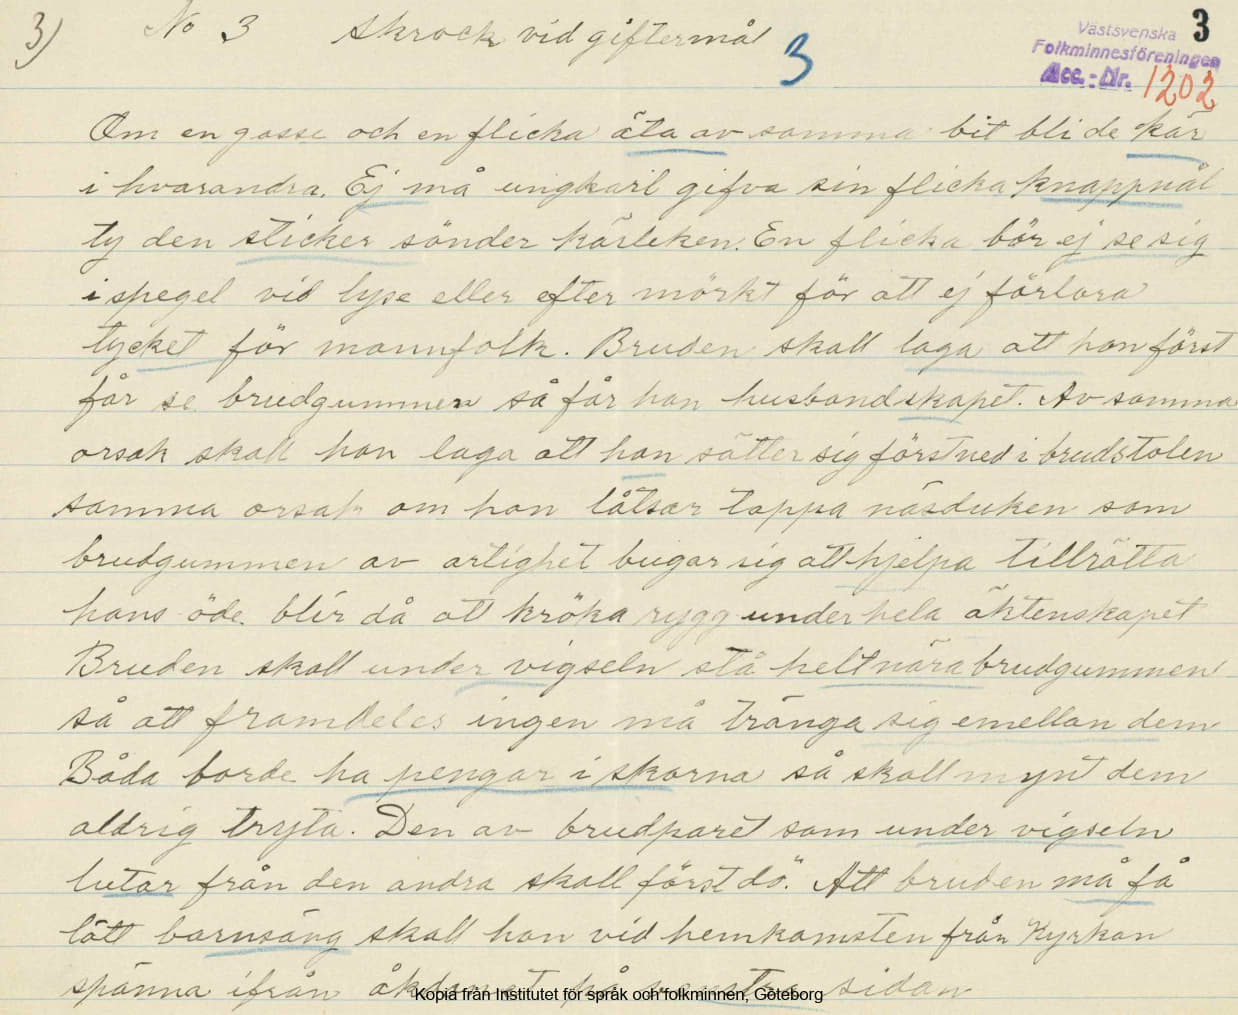 3) No 3 Skrock vid giftermål 3
3
Västsvenska
Folkminnesföreningen
Acc.-Nr. 1202
Om en gosse och en flicka äta av samma bit bli de kär
i hvarandra. Ej må ungkarl gifva sin flicka knappnål
ty den sticker sönder kärleken. En flicka bör ej se sig
i spegel vid lyse eller efter mörkt för att ej förlora
tycket för mannfolk. Bruden skall laga att hon först
får se brudgummen så får hon husbondskapet. Av samma
orsak skall hon laga att hon sätter sig först ned i brudstolen
samma orsak om hon låtsar tappa näsduken som
brudgummen av artighet bugar sig att hjelpa tillrätta
hans öde blir då att kröka rygg under hela äktenskapet
Bruden skall under vigseln stå helt nära brudgummen
så att framdeles ingen må tränga sig emellan dem
Båda borde ha pengar i skorna så skall mynt dem
aldrig tryta. Den av brudparet som under vigseln
lutar från den andra skall först dö. Att bruden må få
lätt barnsäng skall hon vid hemkomsten från Kyrkan
spänna ifrån åkdonet på venstra sidan
Kopia från Institutet för språk och folkminnen, Göteborg